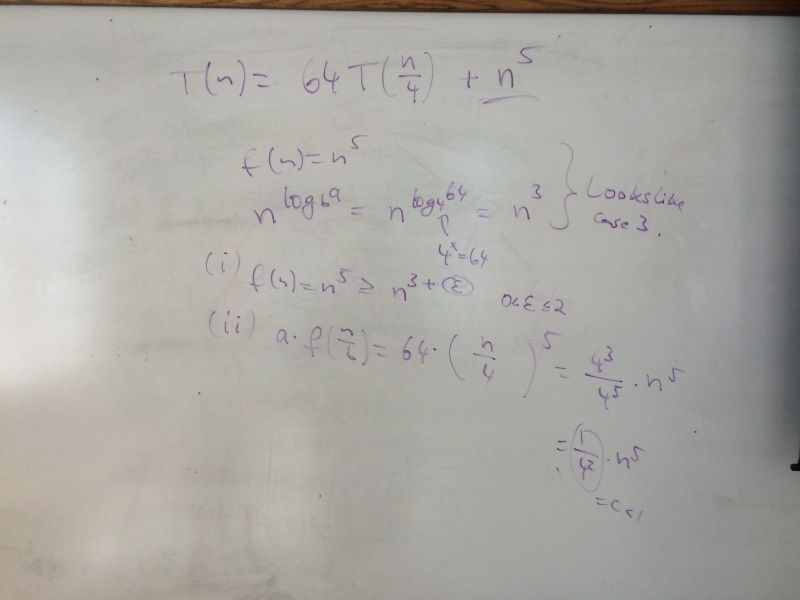 T(n) = 64 T(n/4) + n^5
f(n) = n^5
n^log_b a = n^log_4 64 = n^3 } Looks like
case 3.
4^x = 64
(i) f(n) = n^5 ≥ n^(3+ε) 0<ε≤2
(ii) a · f(n/b) = 64 · (n/4)^5 = 4^3/4^5 · n^5
= 1/4^2 · n^5
= c < 1